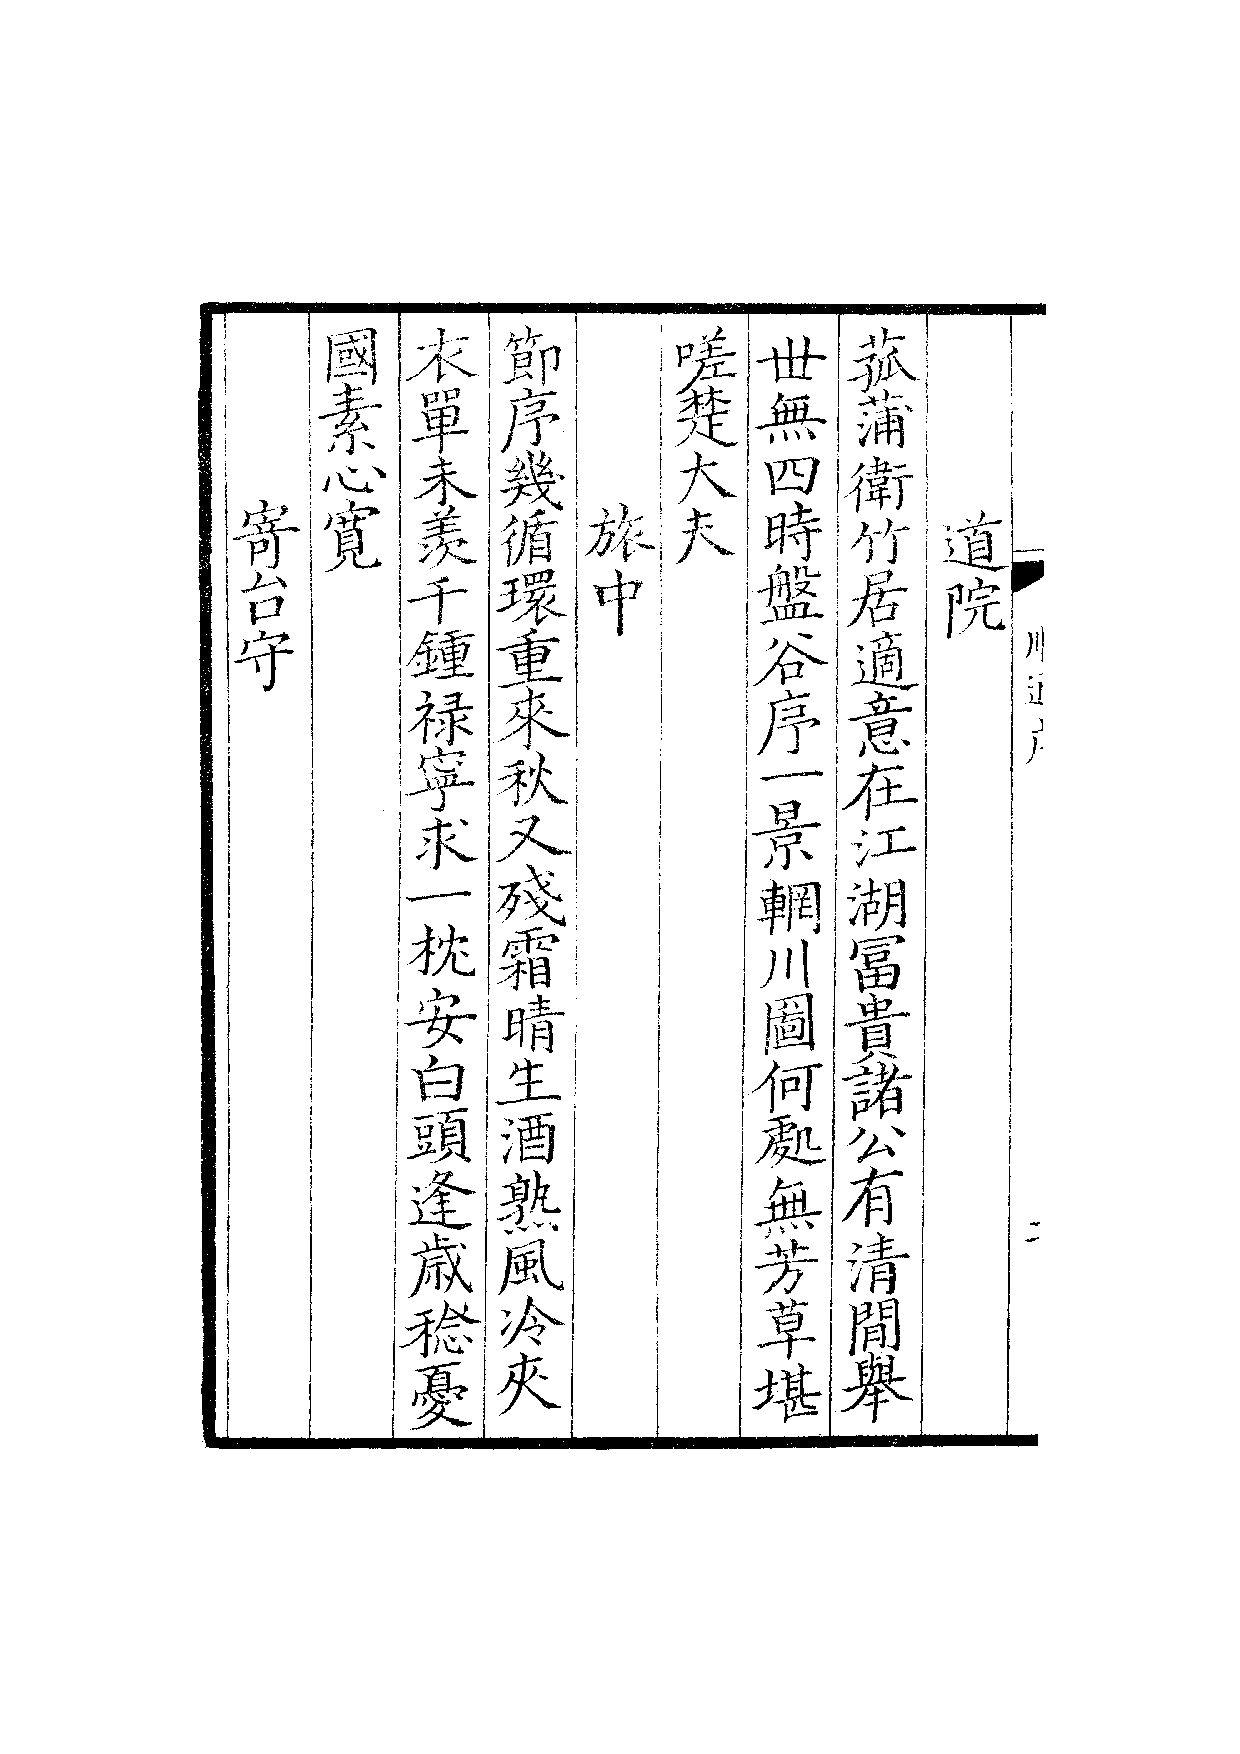 道院
菰蒲衛竹居適意在江湖冨貴諸公有清閒舉
世無四時盤谷序一景輞川圖何處無芳草堪
嗟楚大夫
旅中
節序幾循環重來秋又殘霜晴生酒熟風冷夾
衣單未羨千鍾禄寧求一枕安白頭逢歳稔憂
國素心寛
寄台守